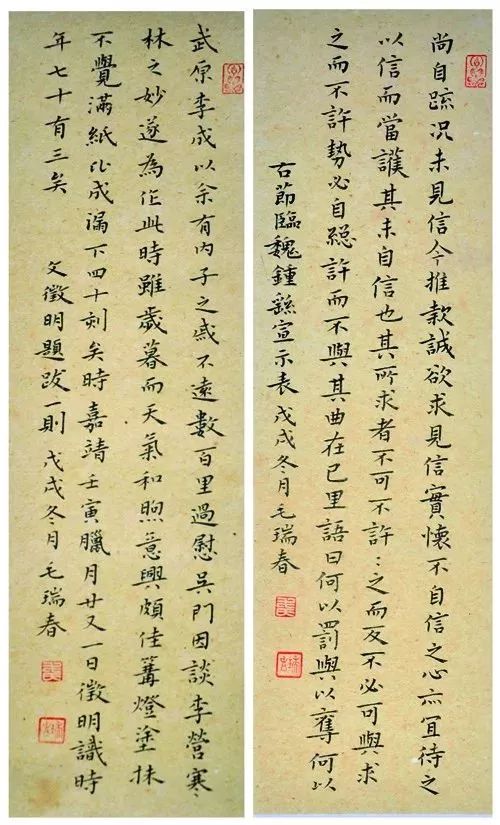 尚自踈況未見信今推款誠欲求見信實懷不自信之心亦冝待之
以信而當護其未自信也其所求者不可不許：之而反不必可與求
之而不許勢必自絕許而不與其曲在已里語曰何以罰與以奪何以
古節臨魏鍾繇宣示表戊戌冬月毛瑞春
武原李成以余有內子之戚不遠數百里過慰吳門因談李營寒
林之妙遂為作此時雖歲暮而天氣和煦意興頗佳篝燈塗抹
不覺滿紙比成漏下四十刻矣時嘉靖壬寅臘月廿又一日徵明識時
年七十有三矣 文徵明題跋一則 戊戌冬月毛瑞春